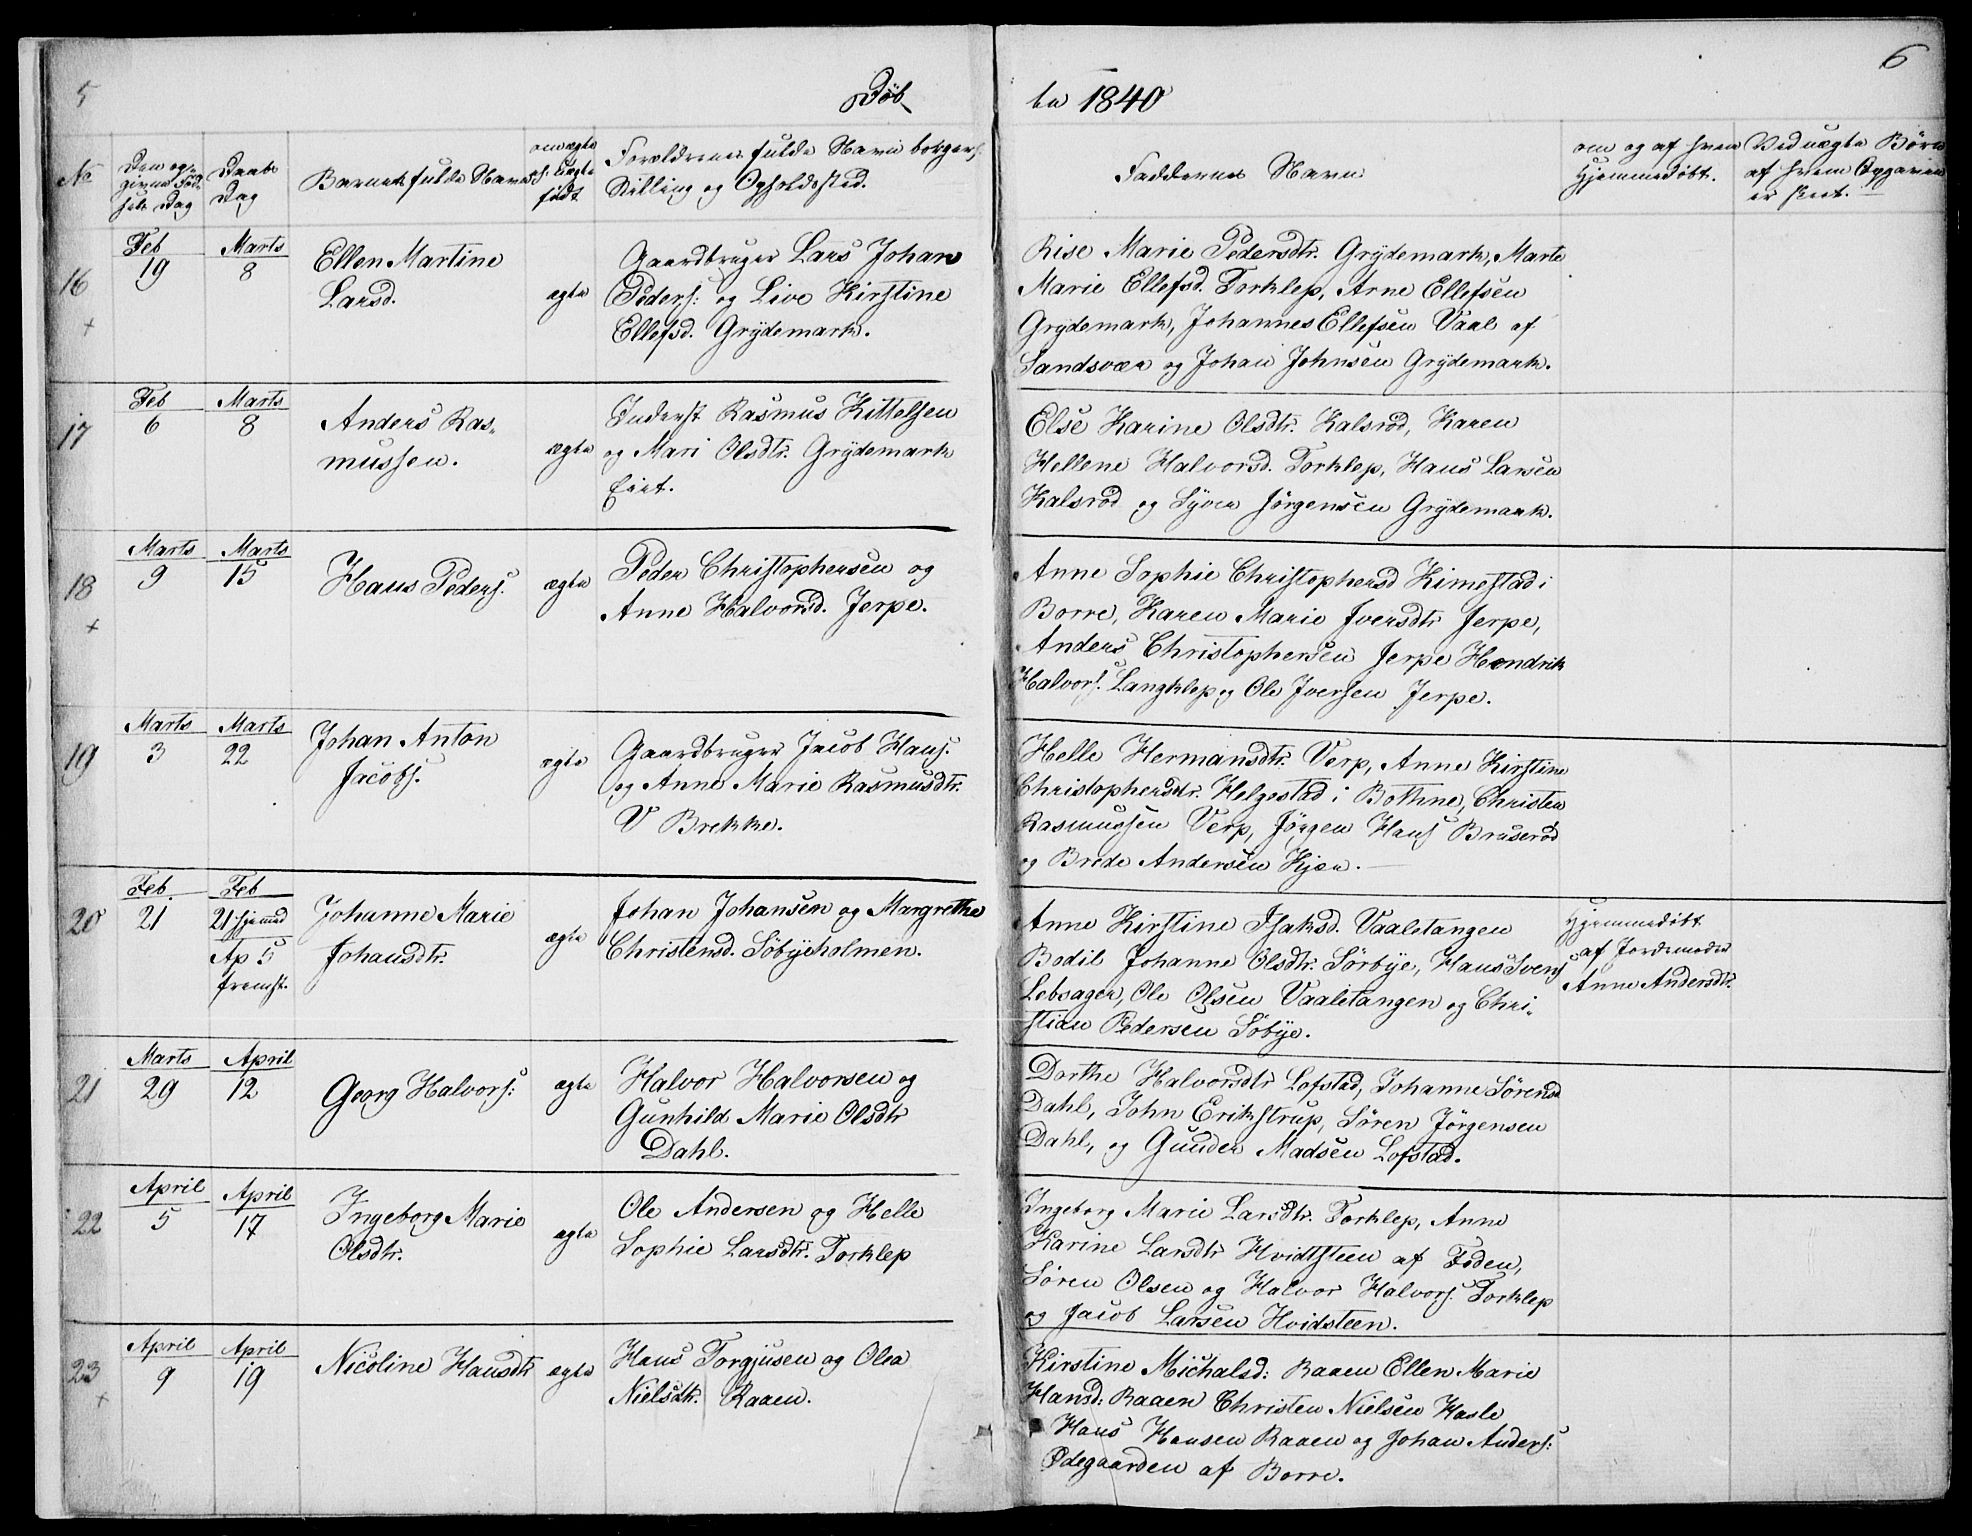 5
Døb
te 1840
6
No
Den op-
givne Fød-
sels Dag
Daabs
Dag
Barnets fulde Navn
om ægte
el. Uægte
født
Forældrenes fulde Navn borgerl.
Stilling og Opholdssted.
Faddernes Navn
om og af hvem
Hjemmedøbt.
Ved uægte Børn
af hvem Opgaven
er skeet.
16
+
Feb
19
Marts
8
Ellen Martine
Larsd.
ægte
Gaardbruger Lars Johan
Peders: og Live Kirstine
Ellefsd. Grÿdemark.
Rise Marie Pedersdtr. Grÿdemark, Marte
Marie Ellefsd. Torklep, Arne Ellefsen
Grÿdemark, Johannes Ellefsen Vaal af
Sandsvær og Johan Johnsen Grÿdemark.
17
Feb
6
Marts
8
Anders Ras-
mussen.
ægte
Inderst Rasmus Kittelsen
og Mari Olsdtr. Grÿdemark
Eiet.
Else Karine Olsdtr. Kalsrød, Karen
Hellene Halvorsd. Torklep, Hans Larsen
Kalsrød og Syver Jørgensen Grÿdemark.
18
+
Marts
9
Marts
15
Hans Peders.
ægte
Peder Christophersen og
Anne Halvorsd. Jerpe.
Anne Sophie Christophersd Kimestad i
Borre, Karen Marie Iversdtr Jerpe,
Anders Christophersen Jerpe Hendrik
Halvors. Langklep og Ole Iversen Jerpe.
19
Marts
3
Marts
22
Johan Anton
Jacobs.
ægte
Gaardbruger Jacob Hans.
og Anne Marie Rasmusdtr.
V Brekke.
Helle Hermansdtr. Verp, Anne Kirstine
Christophersdtr. Helgestad i Bothne, Christen
Rasmussen Verp, Jørgen Hans Bruserød
og Brede Andersen Kjær.
20
Feb.
21
Feb
21 hjemmed
Ap 5
fremst.
Johanne Marie
Johansdtr.
ægte
Johan Johansen og Margrethe
Christensd. Søbÿeholmen.
Anne Kirstine Isaksd. Vaaletangen
Bodil Johanne Olsdtr. Sørbÿe, Hans Svens
Lebsager, Ole Olsen Vaaletangen og Chri-
stian Pedersen Søbÿe.
Hjemmedøbt
af Jordemoder
Anne Andersdtr.
21
Marts
29
April
12
Georg Halvors:
ægte
Halvor Halvorsen og
Gunhild Marie Olsdtr
Dahl.
Dorthe Halvorsdtr Lofstad, Johanne Sørensd
Dahl, John Erikstrup, Søren Jørgensen
Dahl, og Gunder Madsen Lofstad.
22
April
5
April
17
Ingeborg Marie
Olsdtr.
ægte
Ole Andersen og Helle
Sophie Larsdtr. Torklep
Ingeborg Marie Larsdtr. Torklep, Anne
Karine Larsdtr Hvidtsteen af Foden,
Søren Olsen og Halvor Halvors. Torklep
og Jacob Larsen Hvidsteen.
23
+
April
9
April
19
Nicoline Hansdtr
ægte
Hans Torgjusen og Olea
Nielsdtr. Raaen.
Kirstine Michalsd: Raaen Ellen Marie
Hansd: Raaen Christen Nielsen Hasle
Hans Hansen Raaen og Johan Anders:
Ødegaarden af Borre.